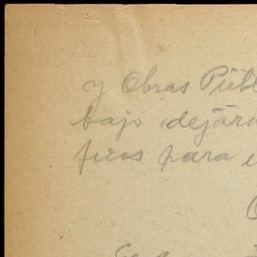 y Obras Públ
bajo dejara
ficos para e